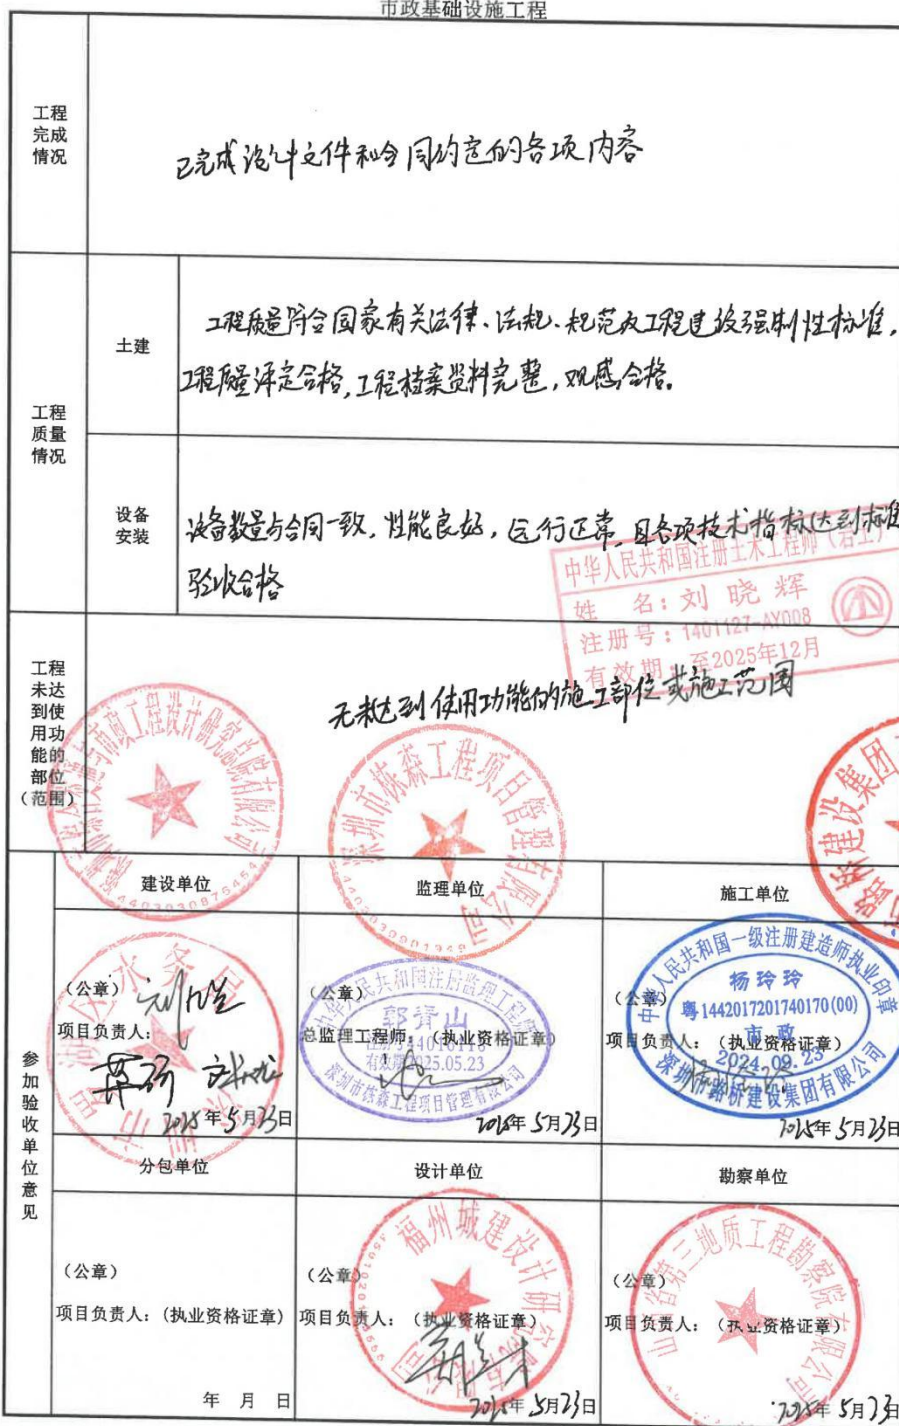 市政基础设施工程
工程
完成
情况
已完成设计文件和合同约定的各项内容
工程
质量
情况
土建
工程质量符合国家有关法律、法规、规范及工程建设强制性标准,
工程质量评定合格,工程档案资料完整,观感合格。
设备
安装
设备数量与合同一致,性能良好,运行正常,且各项技术指标达到标准
验收合格
中华人民共和国注册土木工程师(岩土)
姓 名:刘晓辉
注册号:1401127-AY008
有效期:至2025年12月
工程
未达
到使
用功
能的
部位
(范围)
无未达到使用功能的施工部位或施工范围
深圳市栋森工程项目管理有限公司
路桥建设集团
参加验收单位意见
建设单位
监理单位
施工单位
(公章)
项目负责人:
2025年5月23日
(公章)
总监理工程师:(执业资格证章)
郭青山
有效期2025.05.23
深圳市栋森工程项目管理有限公司
2025年5月23日
(公章)
项目负责人:(执业资格证章)
中华人民共和国一级注册建造师执业印章
杨玲玲
粤1442017201740170(00)
市政
2024.09.23
深圳市路桥建设集团有限公司
2025年5月23日
分包单位
设计单位
勘察单位
(公章)
项目负责人:(执业资格证章)
年 月 日
(公章)
项目负责人:(执业资格证章)
福州城建设计研究院有限公司
2025年5月23日
(公章)
项目负责人:(执业资格证章)
山西省第三地质工程勘察院有限公司
2025年5月23日